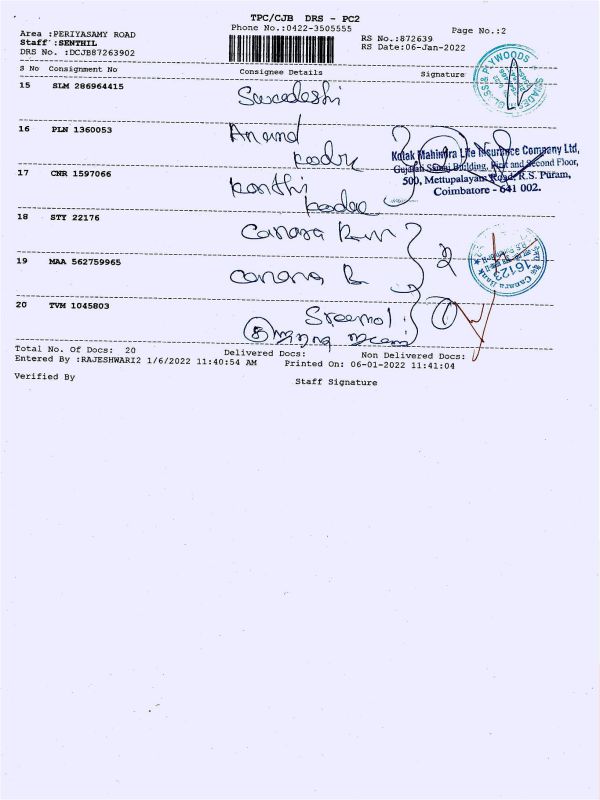 TPC/CJB DRS - PC2
Phone No.:0422-3505555
Page No.:2
Area :PERIYASAMY ROAD
Staff :SENTHIL
DRS No. :DCJB87263902
RS No.:872639
RS Date:06-Jan-2022
S No Consignment No Consignee Details Signature
15 SLM 286964415 Swadeshi
16 PLN 1360053 Anand
17 CNR 1597066
18 STY 22176 Canara
19 MAA 562759965 Canara B
20 TVM 1045803 Sreemol
PLYWOODS
Kotak Mahindra Life Insurance Company Ltd,
Gujarati Samaj Building, First and Second Floor,
500, Mettupalayam Road, R.S. Puram,
Coimbatore - 641 002.
Canara Bank
16123
Total No. Of Docs: 20 Delivered Docs: Non Delivered Docs:
Entered By :RAJESHWARI2 1/6/2022 11:40:54 AM Printed On: 06-01-2022 11:41:04
Verified By Staff Signature